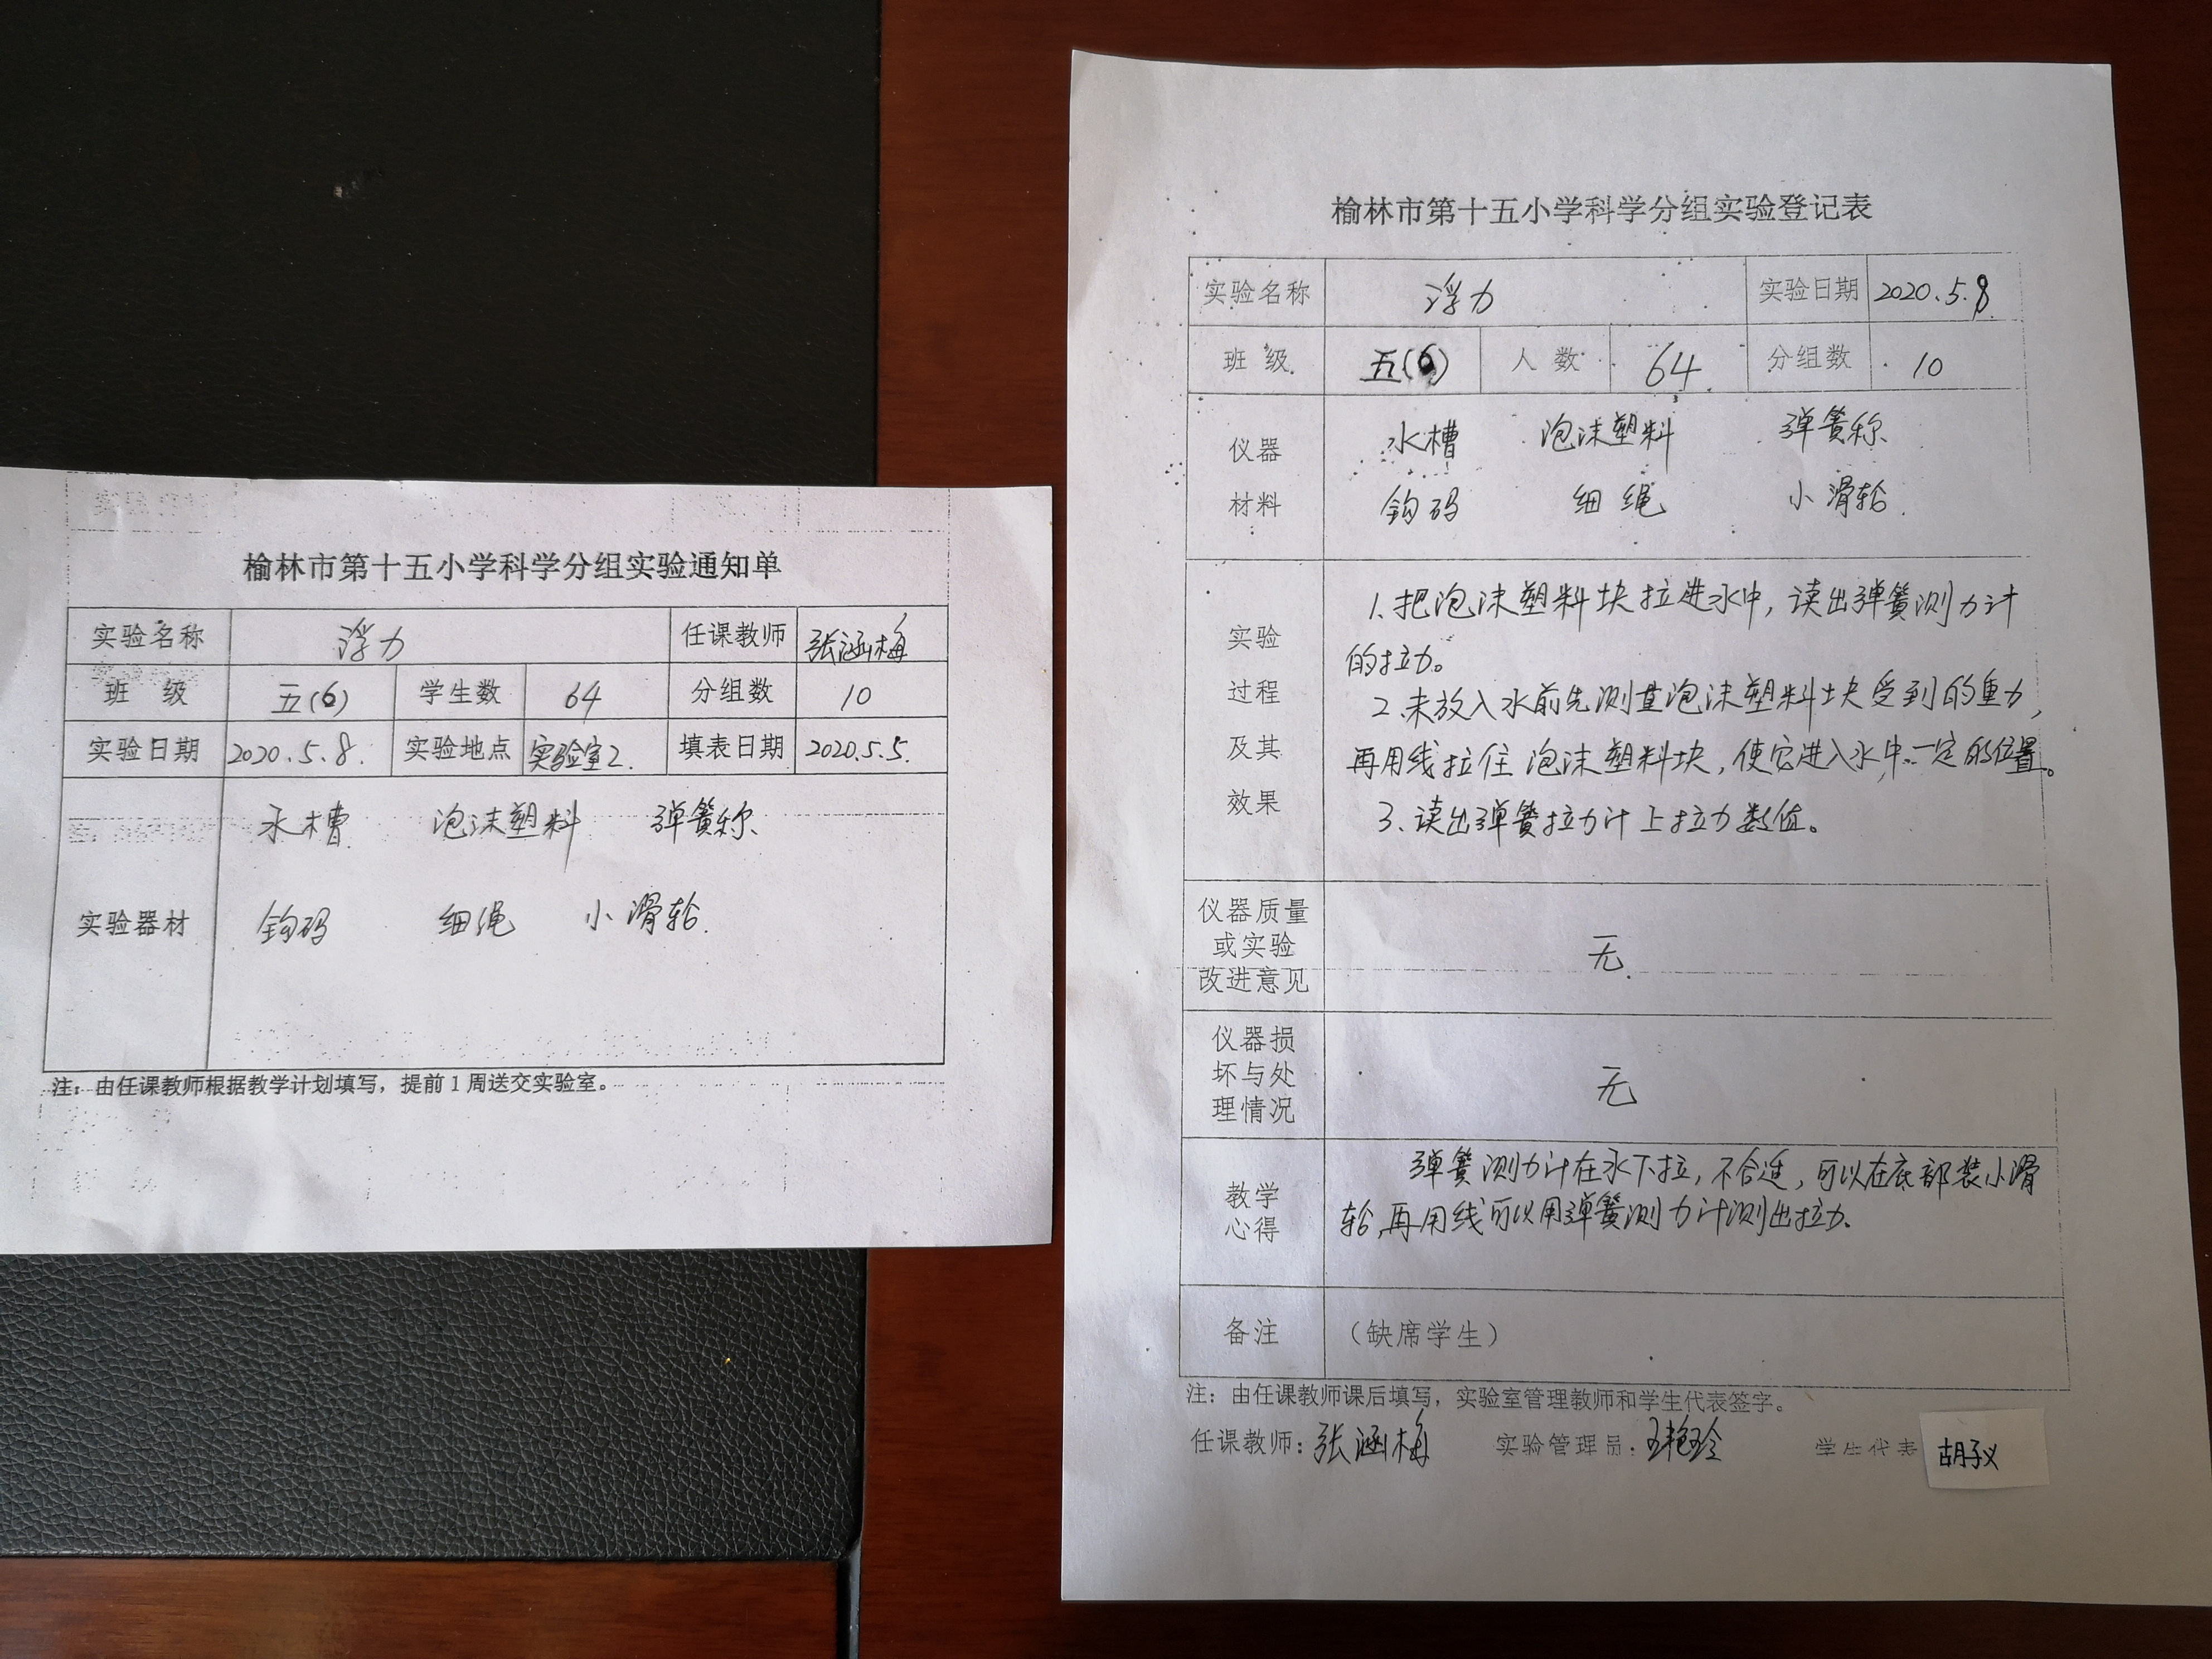 榆林市第十五小学科学分组实验通知单
实验名称 浮力 任课教师 张涵梅
班 级 五(6) 学生数 64 分组数 10
实验日期 2020.5.8. 实验地点 实验室2. 填表日期 2020.5.5.
水槽 泡沫塑料 弹簧称
实验器材 钩码 细绳 小滑轮.
注：由任课教师根据教学计划填写，提前1周送交实验室。
榆林市第十五小学科学分组实验登记表
实验名称 浮力 实验日期 2020.5.8.
班 级 五(6) 人 数 64 分组数 10
仪器 水槽 泡沫塑料 弹簧称
材料 钩码 细绳 小滑轮.
实验
过程
及其
效果
1.把泡沫塑料块拉进水中，读出弹簧测力计
的拉力。
2.未放入水前先测量泡沫塑料块受到的重力，
再用线拉住泡沫塑料块，使它进入水中一定的位置。
3、读出弹簧拉力计上拉力数值。
仪器质量
或实验
改进意见
无.
仪器损
坏与处
理情况
无
教学
心得
弹簧测力计在水下拉，不合适，可以在底部装小滑
轮，再用线可以用弹簧测力计测出拉力.
备注 （缺席学生）
注：由任课教师课后填写，实验室管理教师和学生代表签字。
任课教师：张涵梅 实验管理员：王艳玲 学生代表 胡子义